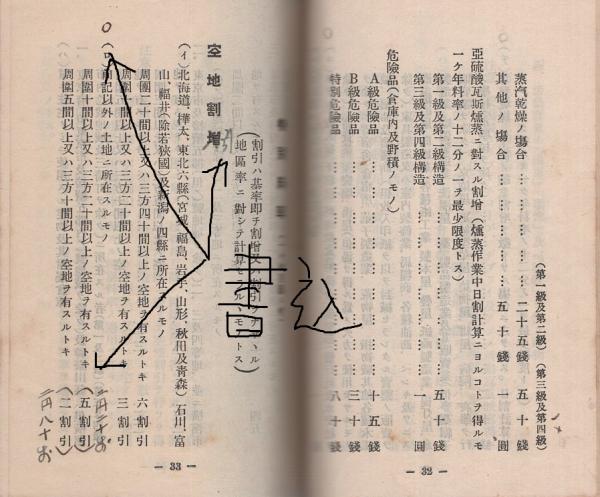 (第一級及第二級) (第三級及第四級)
蒸汽乾燥ノ場合 二十五錢 五十錢
其他ノ場合 五十錢 一圓
亞硫酸瓦斯燻蒸ニ對スル割增(燻蒸作業中日割計算ニヨルコトヲ得ルモ
一ケ年料率ノ十二分ノ一ヲ最少限度トス)
第一級及第二級構造 五十錢
第三級及第四級構造 一圓
危險品(倉庫內及野積ノモノ)
A級危險品 十五錢
B級危險品 三十錢
特別危險品 八十錢
— 32 —
(割引ハ基率卽チ割增又
地區率ニ對シテ計算
空地割增
(イ)北海道、樺太、東北六縣(宮城、福島、岩手、山形、秋田及靑森)石川、富
山、福井(除若狹國)及新潟ノ四縣ニ所在スルモノ
周圍二十間以上又ハ三方四十間以上ノ空地ヲ有スルトキ 六割引
周圍十間以上又ハ三方二十間以上ノ空地ヲ有スルトキ 三割引
(ロ)前記以外ノ土地ニ所在スルモノ
周圍十間以上又ハ三方二十間以上ノ空地ヲ有スルトキ (五割引)
周圍五間以上又ハ三方十間以上ノ空地ヲ有スルトキ (二割引)
— 33 —
書込